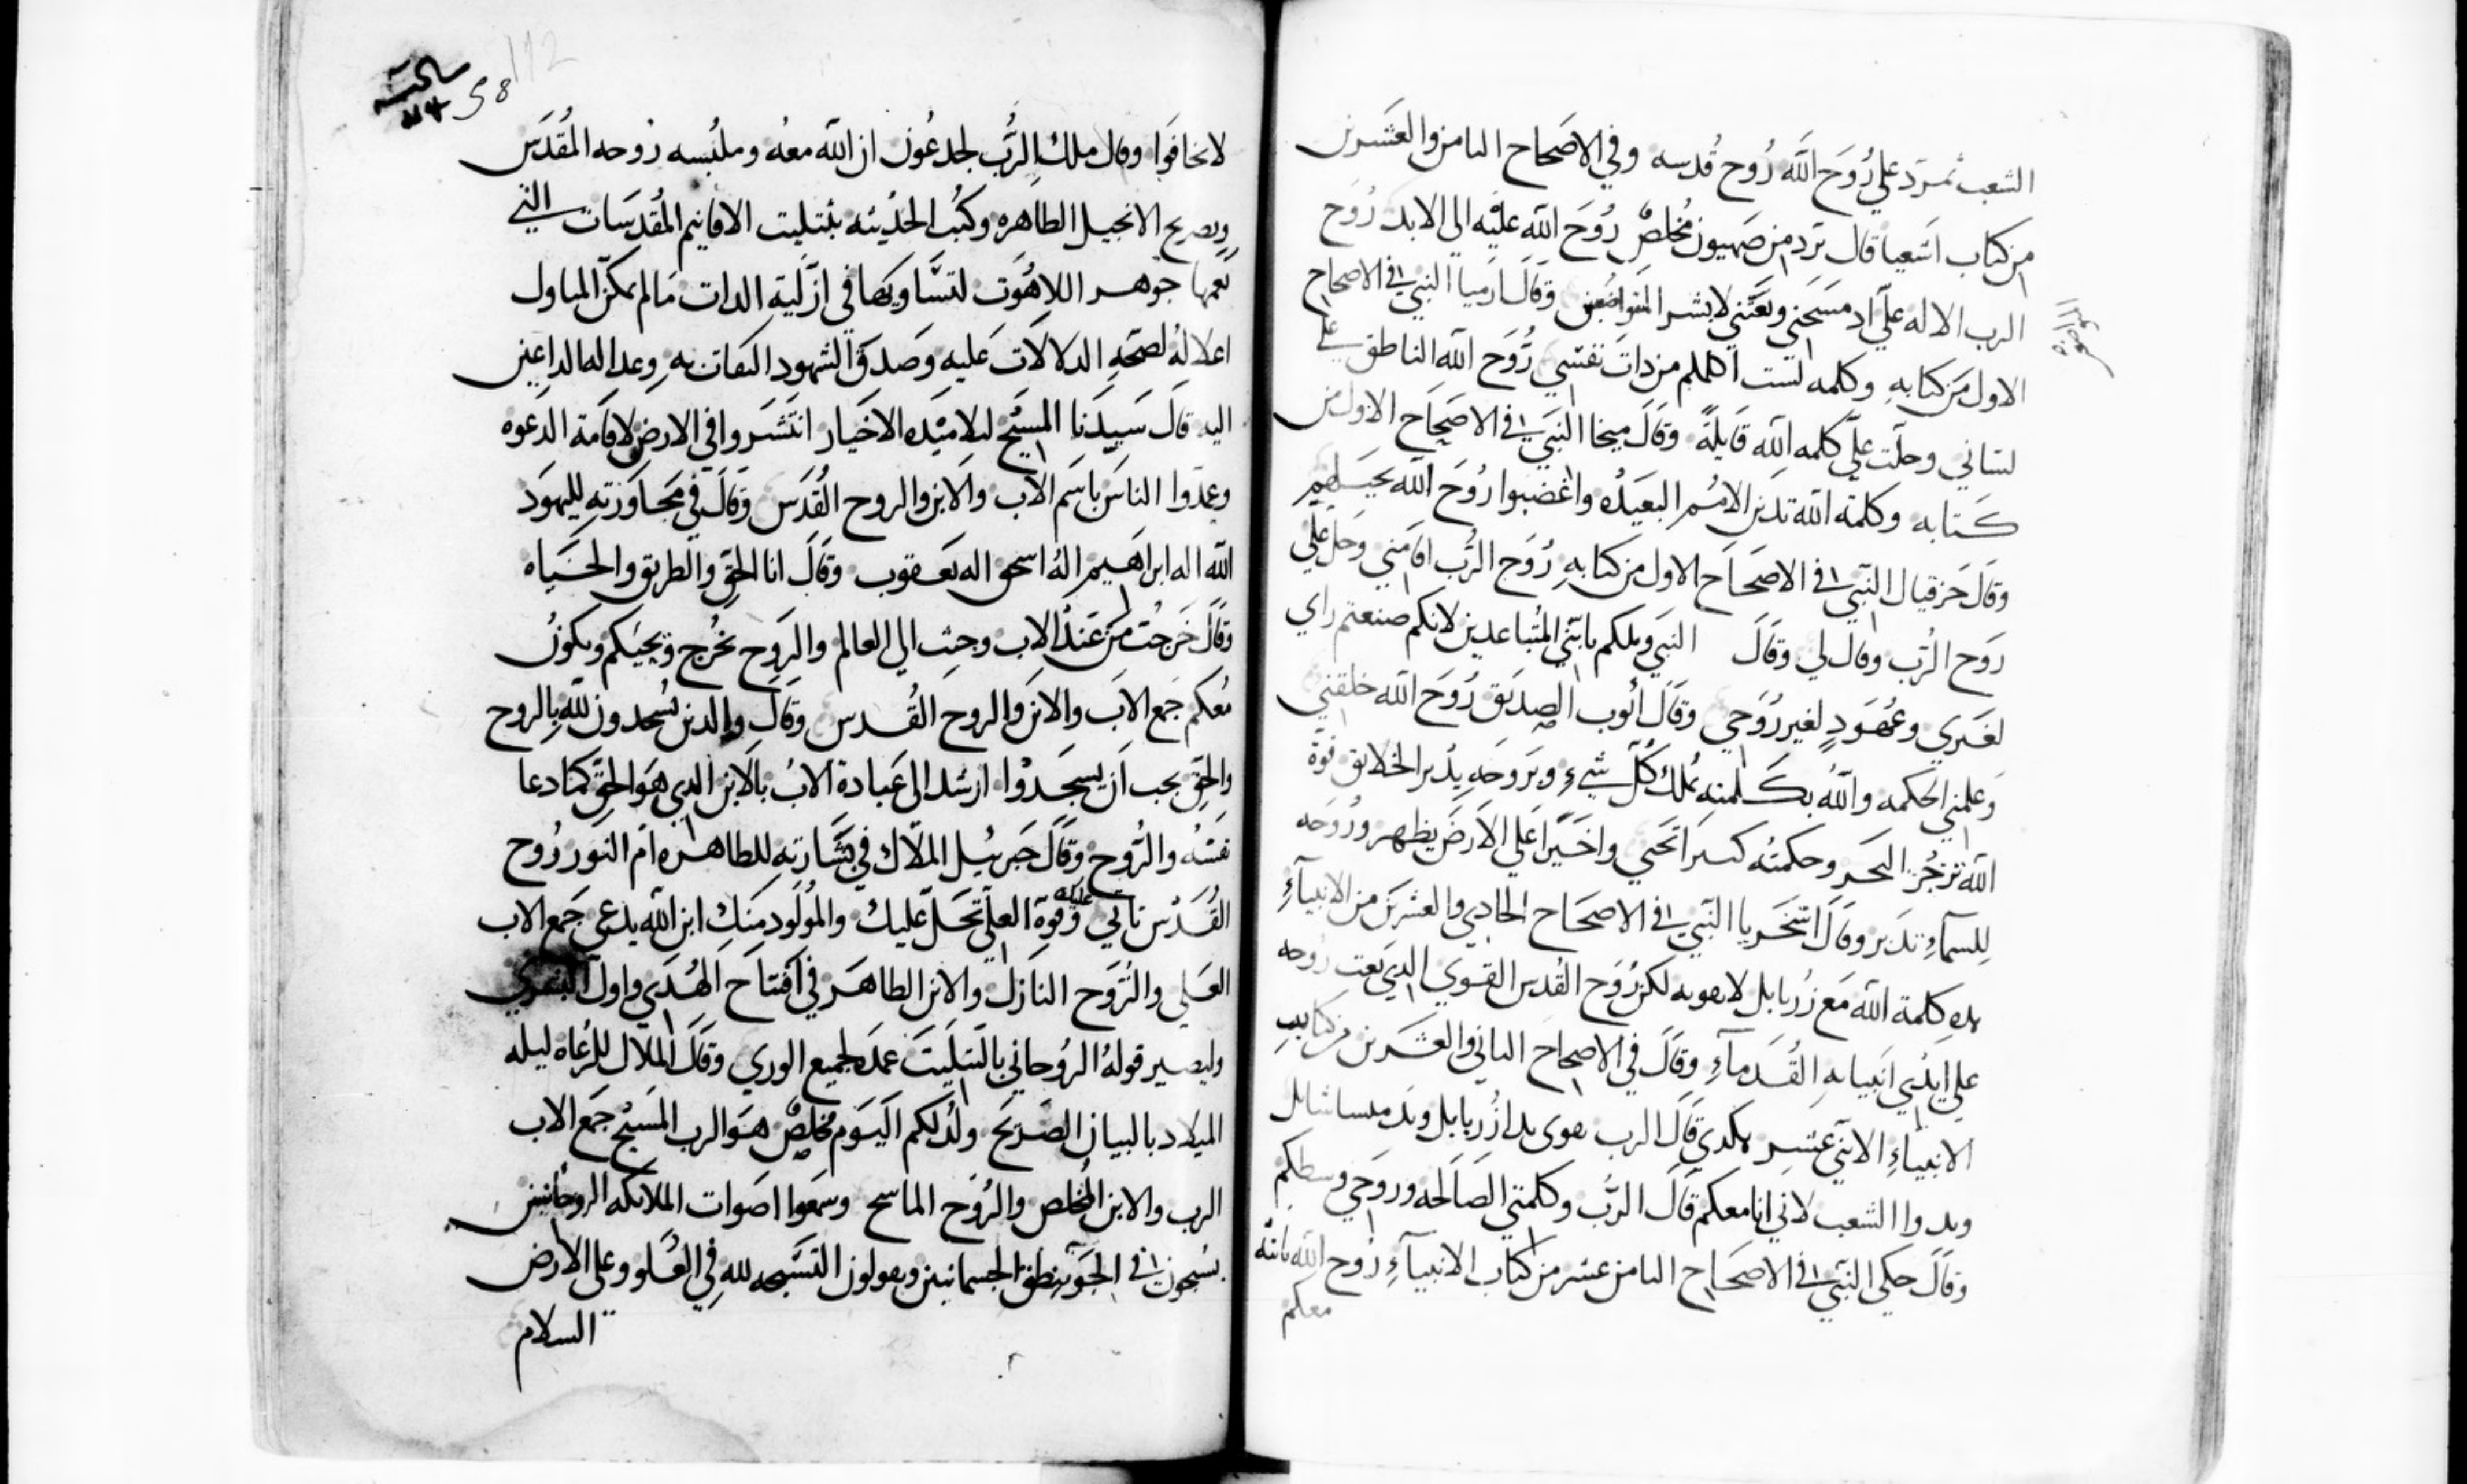 الشعب تمرد علي رُوح الله رُوح قُدسه وفي الاصحاح الثامن والعشرين
من كتاب اشعيا قال ترد من صهيون مُخلصٌ رُوح الله عليه الي الابد رُوح
الرب الاله علّي اد مسَحَني وبعَتني لابشر المتواضعين وقَالَ ارميا النبي في الاصحاح
الاول مَن كتابهِ وكلمه لسَت اكلمكم من داتَ نفسَي رُوحَ الله الناطق علي
لسَاني وحلّت علّي كلمه الله قَايلةً وقَالَ ميخا النَبي في الاصحَاح الاول من
كتابه وكلمَة الله تدَين الامُم البعيَدُه واغضبوا رُوحَ الله
وقَالَ حَزقيال النّبي في الاصحَاح الاول من كتابهِ رُوَح الرُب اقامَني وحَل علّي
روَح الرُب وقال لي وقَالَ النبَي ويلكم يابنّي المتُباعدين لانكم صنعتم راي
لغَيري وعُهودٍ لغير رُوَحي وقَالَ ايُوب الصِدَيق رُوَح الله خلقتني
وَعلمتني الحكمه والله بكلمته مُلك كُلّ شَيءٍ وبَروحَهِ يدُبر الخلايق قوّة
الله تزجُر البحَر وحكمتُه كسرَا تحَيي واخيَرًا علي الارضَ يظهر ورُوحَه
لِلسماءِ تدَبر وقَالَ النبّي في الاصحَاح الحَادي والعشرين من الانبيآءِ
كلمة الله مَع زُربابل لا بقوه لكن رُوَح القُدس القوي الدي بَعت رُوحه
علي ايدُي انبيايهِ القُدَمآءِ وقَالَ في الاصحاح التاني والعشرين من كتابِ
الانبياءِ الاتني عشر هكدي قَالَ الرب زُربابل
الشعب لاني انا معكم قَالَ الرُب وكلمتي الصَالحه وروَحي وسطكم
وقَالَ حكي النبّي في الاصحَاح التامن عشر من كتاب الانبيآءِ رُوح الله بانه
معكم
58
112
لا تخافوَا وقال ملك الرُب لجدعُون ان الله معهُ وملبُسه رُوحه المُقدَس
وبصريح الانجيل الطاهره وكتُب الحدُيته بتَتليت الاقانيم المُقدسَات التي
يَعمها جوَهر اللاهُوَت لتسَاويَها في ازَليِة الدات مَا لم يمكن المتاول
اعلالهُ لصَحهِ الدلالَات عَليه وَصدق الشهود التقات بهِ وعدالة الداعين
اليه قَالَ سَيدَنا المسَيح لتلاميَده الاخيَار انتَشَروا في الارض لاقَامة الدَعوه
وعمدَوا الناسَ باسَم الاب والابن والروح القُدَس وقَالَ في مَحَاورَتهِ لليهوَد
الله اله ابراهيم الهُ اسحق اله يَعَقوب وقَالَ انا الحَق والطريق والحَيَاه
وقَالَ خَرجُت مَن عَندُ الاب وجيت الي العالم والرَوح يخُرج ويجيُكم ويكونُ
مُعكم جَمع الابَ والابن والروح القُدس وقَالَ والدين يسُجدون لله بِالروح
والحِق يجب اَن يسجَدوُا ارشد الي عَبادة الابُ بالَابن الدي هوَ الحَق كمَا دعا
نفسَهُ والرُوح وقَالَ جَبريُيل الملاك في بشَارتهِ للطاهره اُم النوَر رُوح
القُدُس تاتي عليك وَقوة العلّي تحَلّ عليك والموُلود مَنكِ ابن الله يدعي جَمع الاب
العَلي والرُوَح النَازل والابن الطاهَر في افتتاح الهُدي واول البشَري
وليصير قولهُ الروُحاني بالتتليَت عمدَه لجميع الوري وقَالَ الملاك للرُعاه ليله
الميلاد بالبيان الصَريَح ولُد لكم اليَوم مُخلصٌ هوَ الرب المسَيح جَمع الاب
الرب والابن المُخلص والرُوَح الماسح وسمَعوا اصَوات الملايكه الروحَانيين
يسُبحونَ في الجَو بنطق الجسمانيين ويقولون التسَبحه لله في العُلو وعلي الارض
السلام